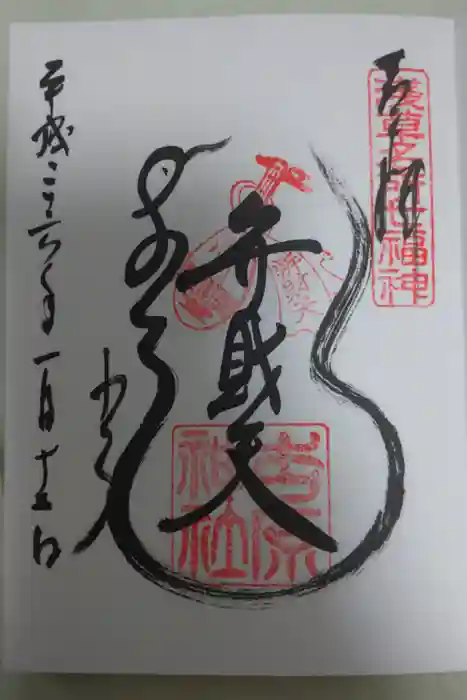 奉拝
浅草名所七福神
弁財天
吉原神社
平成二十六年一月十五日